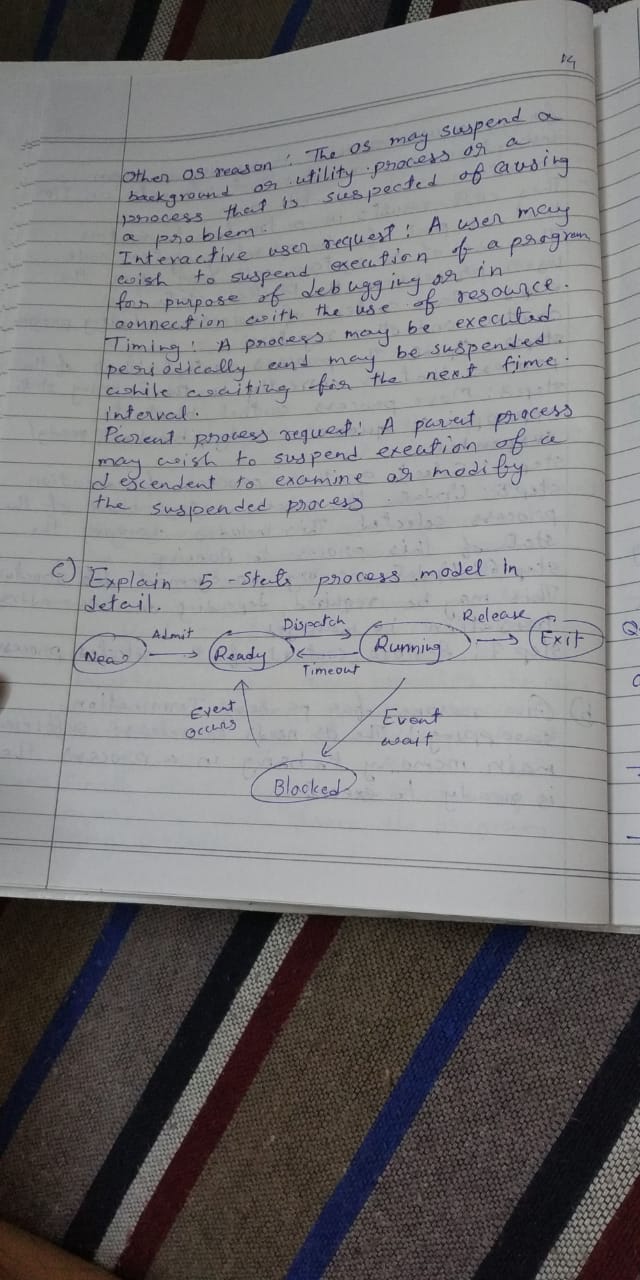 14
Other OS reason : The OS may suspend a
background or utility process or a
process that is suspected of causing
a problem.
Interactive user request : A user may
wish to suspend execution of a program
for purpose of debugging or in
connection with the use of resource.
Timing : A process may be executed
periodically and may be suspended.
while waiting for the next time.
interval.
Parent process request : A parent process
may wish to suspend exeution of a
descendent to examine or modify
the suspended process
c) Explain 5 - State process model in
detail.
New Admit Ready Dispatch Running Release Exit
Timeout
Event occurs
Event wait
Blocked